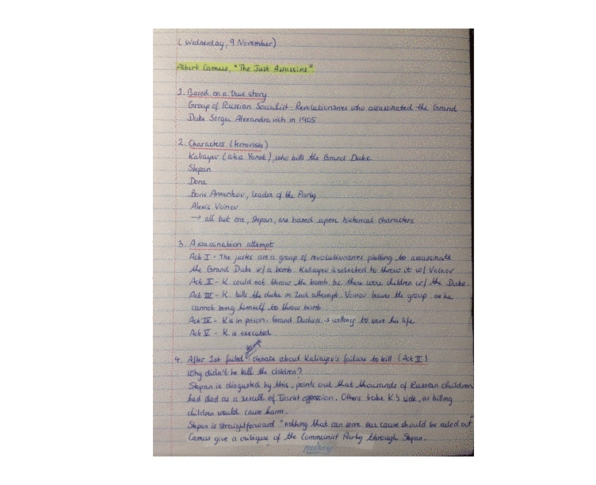 (Wednesday, 9 November)
Albert Camus, "The Just Assassins"
1. Based on a true story
Group of Russian Socialist-Revolutionaries who assassinated the Grand
Duke Sergei Alexandrovich in 1905
2. Characters (terrorists)
Kaliayev (aka Yanek), who kills the Grand Duke
Stepan
Dora
Boris Annenkov, leader of the Party
Alexis Voinov
→ all but one, Stepan, are based upon historical characters
3. Assassination attempt
Act I - The justes are a group of revolutionaries plotting to assassinate
the Grand Duke w/ a bomb. Kaliayev is selected to throw it w/ Voinov
Act II - K. could not throw the bomb bc there were children w/ the Duke.
Act III - K. kills the duke in 2nd attempt. Voinov leaves the group as he
cannot bring himself to throw bomb
Act IV - K is in prison. Grand Duchess is willing to save his life
Act V - K. is executed
4. After 1st failed debate about Kaliayev's failure to kill (Act II)
Why didn't he kill the children?
Stepan is disgusted by this, points out that thousands of Russian children
had died as a result of Tsarist oppression. Others take K.'s side, as killing
children would cause harm.
Stepan is straightforward "nothing that can serve our cause should be ruled out"
Camus give a critique of the Communist Party through Stepan.